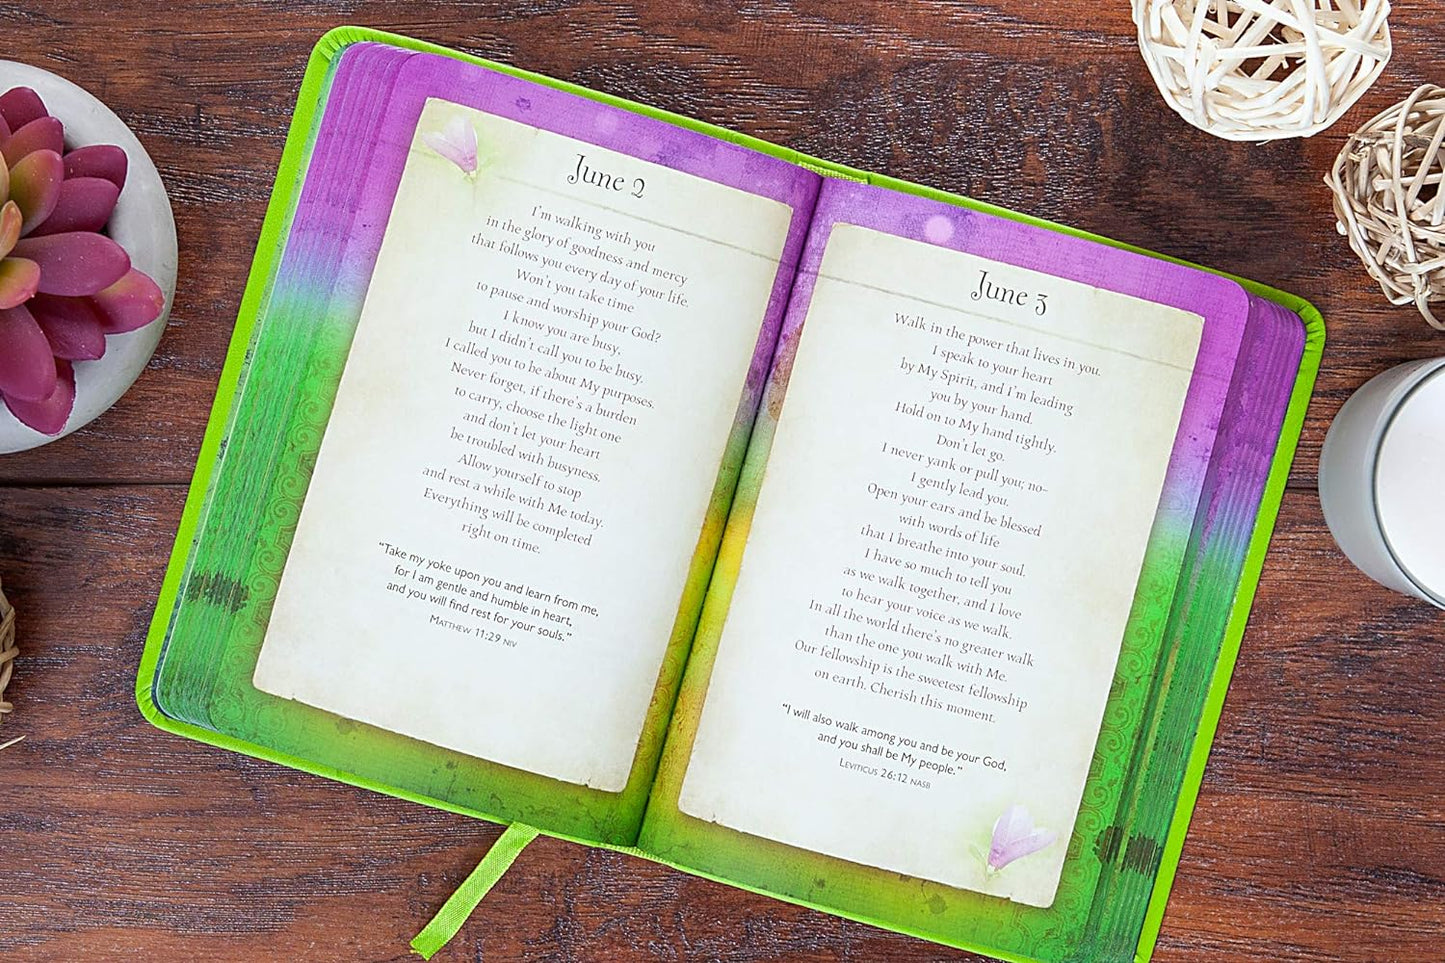 June 2
I'm walking with you
in the glory of goodness and mercy
that follows you every day of your life.
Won't you take time
to pause and worship your God?
I know you are busy,
but I didn't call you to be busy.
I called you to be about My purposes.
Never forget, if there's a burden
to carry, choose the light one
and don't let your heart
be troubled with busyness.
Allow yourself to stop
and rest a while with Me today.
Everything will be completed
right on time.
"Take my yoke upon you and learn from me,
for I am gentle and humble in heart,
and you will find rest for your souls."
Matthew 11:29 NIV
June 3
Walk in the power that lives in you.
I speak to your heart
by My Spirit, and I'm leading
you by your hand.
Hold on to My hand tightly.
Don't let go.
I never yank or pull you; no–
I gently lead you.
Open your ears and be blessed
with words of life
that I breathe into your soul.
I have so much to tell you
as we walk together, and I love
to hear your voice as we walk.
In all the world there's no greater walk
than the one you walk with Me.
Our fellowship is the sweetest fellowship
on earth. Cherish this moment.
"I will also walk among you and be your God,
and you shall be My people."
Leviticus 26:12 NASB